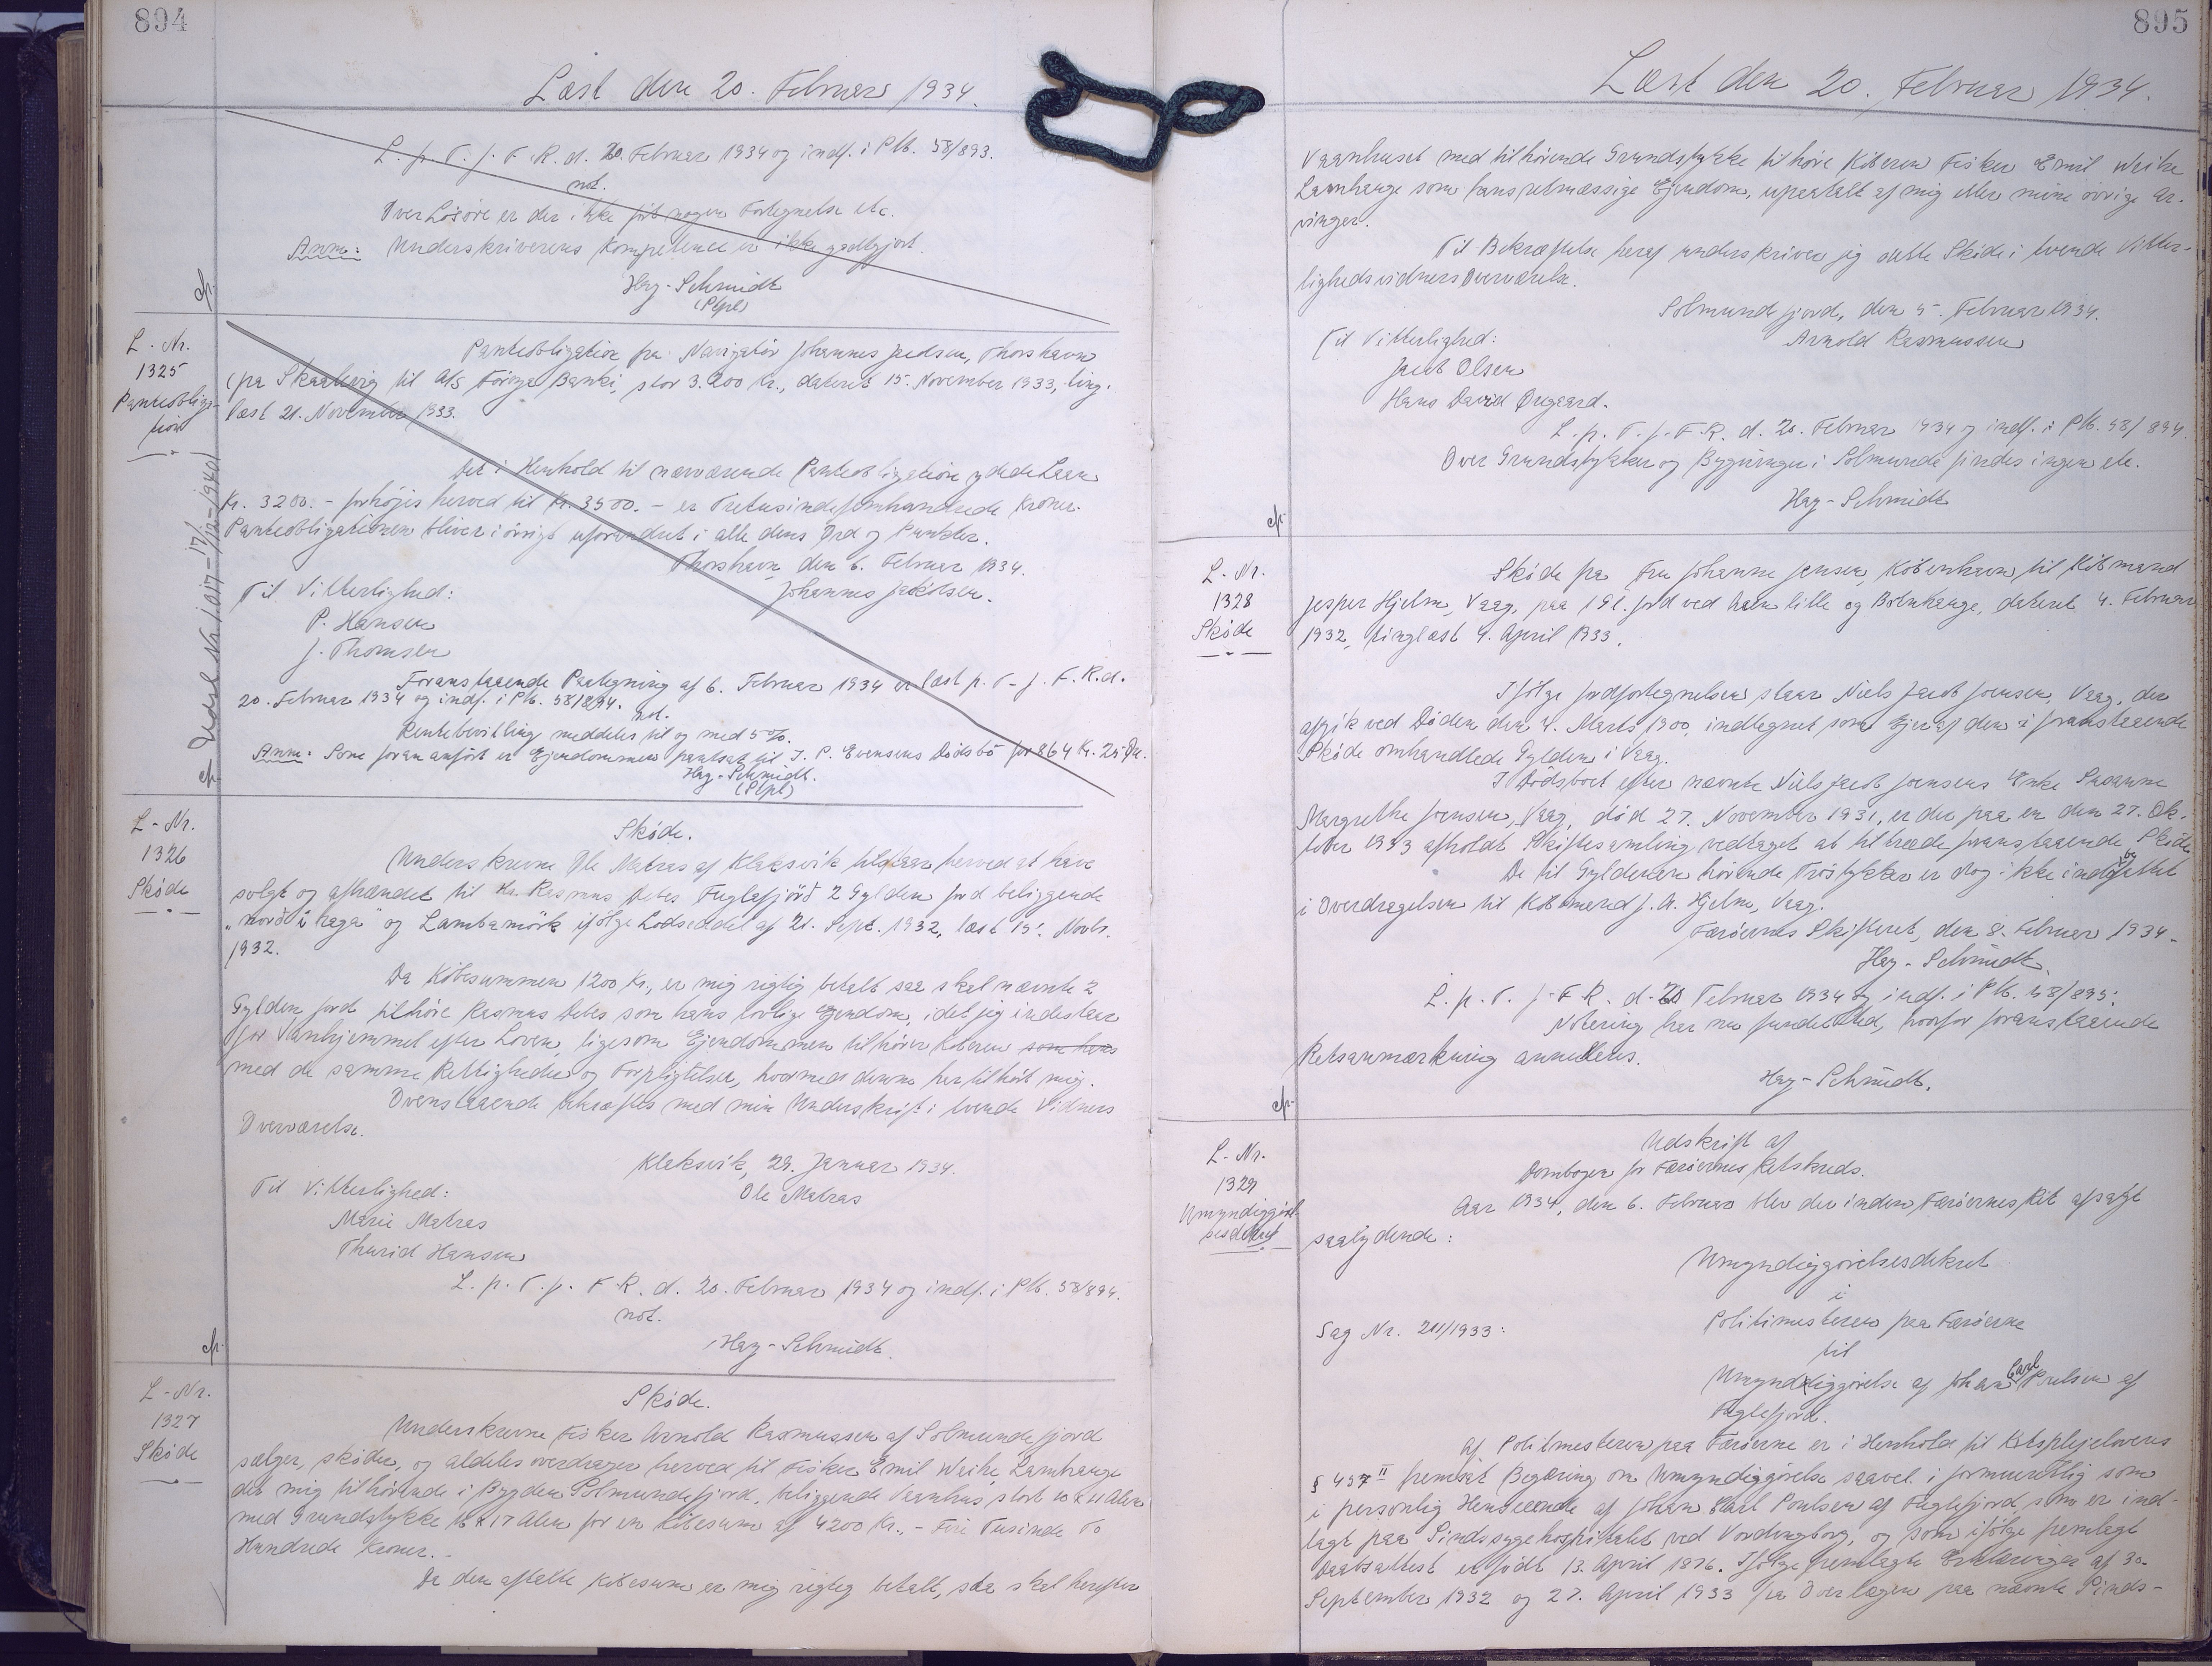 894
Læst den 20. Februar 1934.
L. p. T. f. F. R. d. 20. Februar 1934 og indf. i Ptb. 58/893.
not.
Over Løsøre er der ikke ført nogen Fortegnelse etc.
Anm: Underskriverens Kompetence er ikke godtgjort.
Hay-Schmidt
(Ptpl)
cfr.
L. Nr.
1325
Panteobliga-
tion
Panteobligation fra Navigatør Johannes Jacobsen, Thorshavn
(pa Skaalevig til A/S Føroya Banki, stor 3.200 Kr., dateret 15. November 1933, ting.
læst 21. November 1933.
Det i Henhold til nærværende Panteobligation ydede Laan
Kr. 3200.- forhøjes herved til Kr. 3500.- er Tretusindefemhundrede Kroner.
Panteobligationen bliver i øvrigt uforandret i alle dens Ord og Punkter.
Thorshavn, den 6. Februar 1934.
Til Vitterlighed: Johannes Jacobsen.
P. Hansen
J. Thomsen
Foranstaaende Paategning af 6. Februar 1934 er læst p. T. f. F. R. d.
20. Februar 1934 og indf. i Ptb. 58/894.
not.
Rentebevilling meddeles til og med 5%.
Anm: Som foran anført er Ejendommen pantsat til J. P. Evensens Dødsbo for 864 Kr. 25 Ør.
Hay-Schmidt.
(Ptpl)
cfr. Udsl. Nr. 1017-17/12-1940
L-Nr.
1326
Skøde
Skøde.
Underskrevne Ole Matras af Klaksvik tilstaar herved at have
solgt og afhændet til Hr. Rasmus Debes Fuglafjørð 2 Gylden Jord beliggende
"norð í haga" og Lambamørk ifølge Lodseddel af 21. Sept. 1932, læst 15. Novbr.
1932.
Da Købesummen 1200 Kr., er mig rigtig betalt saa skal nævnte 2
Gylden Jord tilhøre Rasmus Debes som hans lovlige Ejendom, idet jeg indestaar
for Vanhjemmel efter Loven, ligesom Ejendommen tilhører Køberen som hans
med de samme Rettigheder og Forpligtelser, hvormed denne har tilhørt mig.
Ovenstaaende bekræftes med min Underskrift i tvende Vidners
Overværelse.
Klaksvik, 29. Januar 1934.
Til Vitterlighed: Ole Matras
Marie Matras
Thurid Hansen
L. p. T. f. F. R. d. 20. Februar 1934 og indf. i Ptb. 58/894.
not.
Hay-Schmidt.
cfr.
L-Nr.
1327
Skøde
Skøde.
Underskrevne Fisker Arnold Rasmussen af Solmundefjord
sælger, skøder, og aldeles overdrager herved til Fisker Emil Weihe, Lamhauge
det mig tilhørende i Bygden Solmundefjord, beliggende Vaanhus, stort 10 x 11 Alen
med Grundstykke 16 x 17 Alen for en Købesum af 4200 Kr.,- Fire Tusinde To
Hundrede Kroner.-
Da den aftalte Købesum er mig rigtig betalt, saa skal herefter
895
Læst den 20. Februar 1934.
Vaanhuset med tilhørende Grundstykke tilhøre Køberen Fisker Emil Weihe
Lamhauge som hans retmæssige Ejendom, upaatalt af mig eller mine øvrige Ar-
vinger.
Til Bekræftelse heraf underskriver jeg dette Skøde i tvende Vitter-
lighedsvidners Overværelse.
Solmundefjord, den 5. Februar 1934.
Til Vitterlighed: Arnold Rasmussen
Jacob Olsen
Hans David Øregaard.
L. p. T. f. F. R. d. 20. Februar 1934 og indf. i Ptb. 58/894.
Over Grundstykker og Bygninger i Solmunde findes ingen etc.
Hay-Schmidt
cfr.
L-Nr.
1328
Skøde
Skøde fra Fru Johanne Jensen, København til Købmand
Jesper Hjelm, Vaag, paa 1 Gl. Jord ved Aaen lille og Bølnhauge, dateret 4. Februar
1932, tinglæst 4. April 1933.
Ifølge Jordfortegnelsen staar Niels Jacob Joensen, Vaag, der
afgik ved Døden den 4. Marts 1900, indtegnet som Ejer af den i foranstaaende
Skøde omhandlede Gylden i Vaag.
I Dødsboet efter nævnte Niels Jacob Joensens Enke Susanne
Margrethe Joensen, Vaag, død 27. November 1931, er der paa en den 27. Ok-
tober 1933 afholdt Skiftesamling vedtaget at tiltræde foranstaaende Skøde
De til Gyldenen hørende Trøstykker er dog ikke indbefattet
i Overdragelsen til Købmand J. A. Hjelm, Vaag.
Færøernes Skifteret, den 8. Februar 1934.
Hay-Schmidt.
L. p. T. f. F. R. d. 20 Februar 1934 og indf. i Ptb. 58/895.
Notering har nu fundet Sted, hvorfor foranstaaende
Retsanmærkning annulleres.
Hay-Schmidt.
cfr.
L-Nr.
1329
Umyndiggørel-
sesdekret
Udskrift af
Dombogen for Færøernes Retskreds.
Aar 1934, den 6. Februar blev der inden Færøernes Ret afsagt
saalydende:
Umyndiggørelsesdekret
i
Sag Nr. 211/1933: Politimesteren paa Færøerne
til
Umyndiggørelse af Johan Carl Poulsen af
Fuglefjord.
Af Politimesteren paa Færøerne er i Henhold til Retsplejelovens
§ 457 II fremsat Begæring om Umyndiggørelse saavel i formueretlig som
i personlig Henseende af Johan Carl Poulsen af Fuglefjord som er ind-
lagt paa Sindssygehospitalet ved Vordingborg, og som ifølge fremlagt
Daabsattest er født 13. April 1876. Ifølge fremlagte Erklæringer af 30.
September 1932 og 27. April 1933 fra Overlægen paa nævnte Sinds-